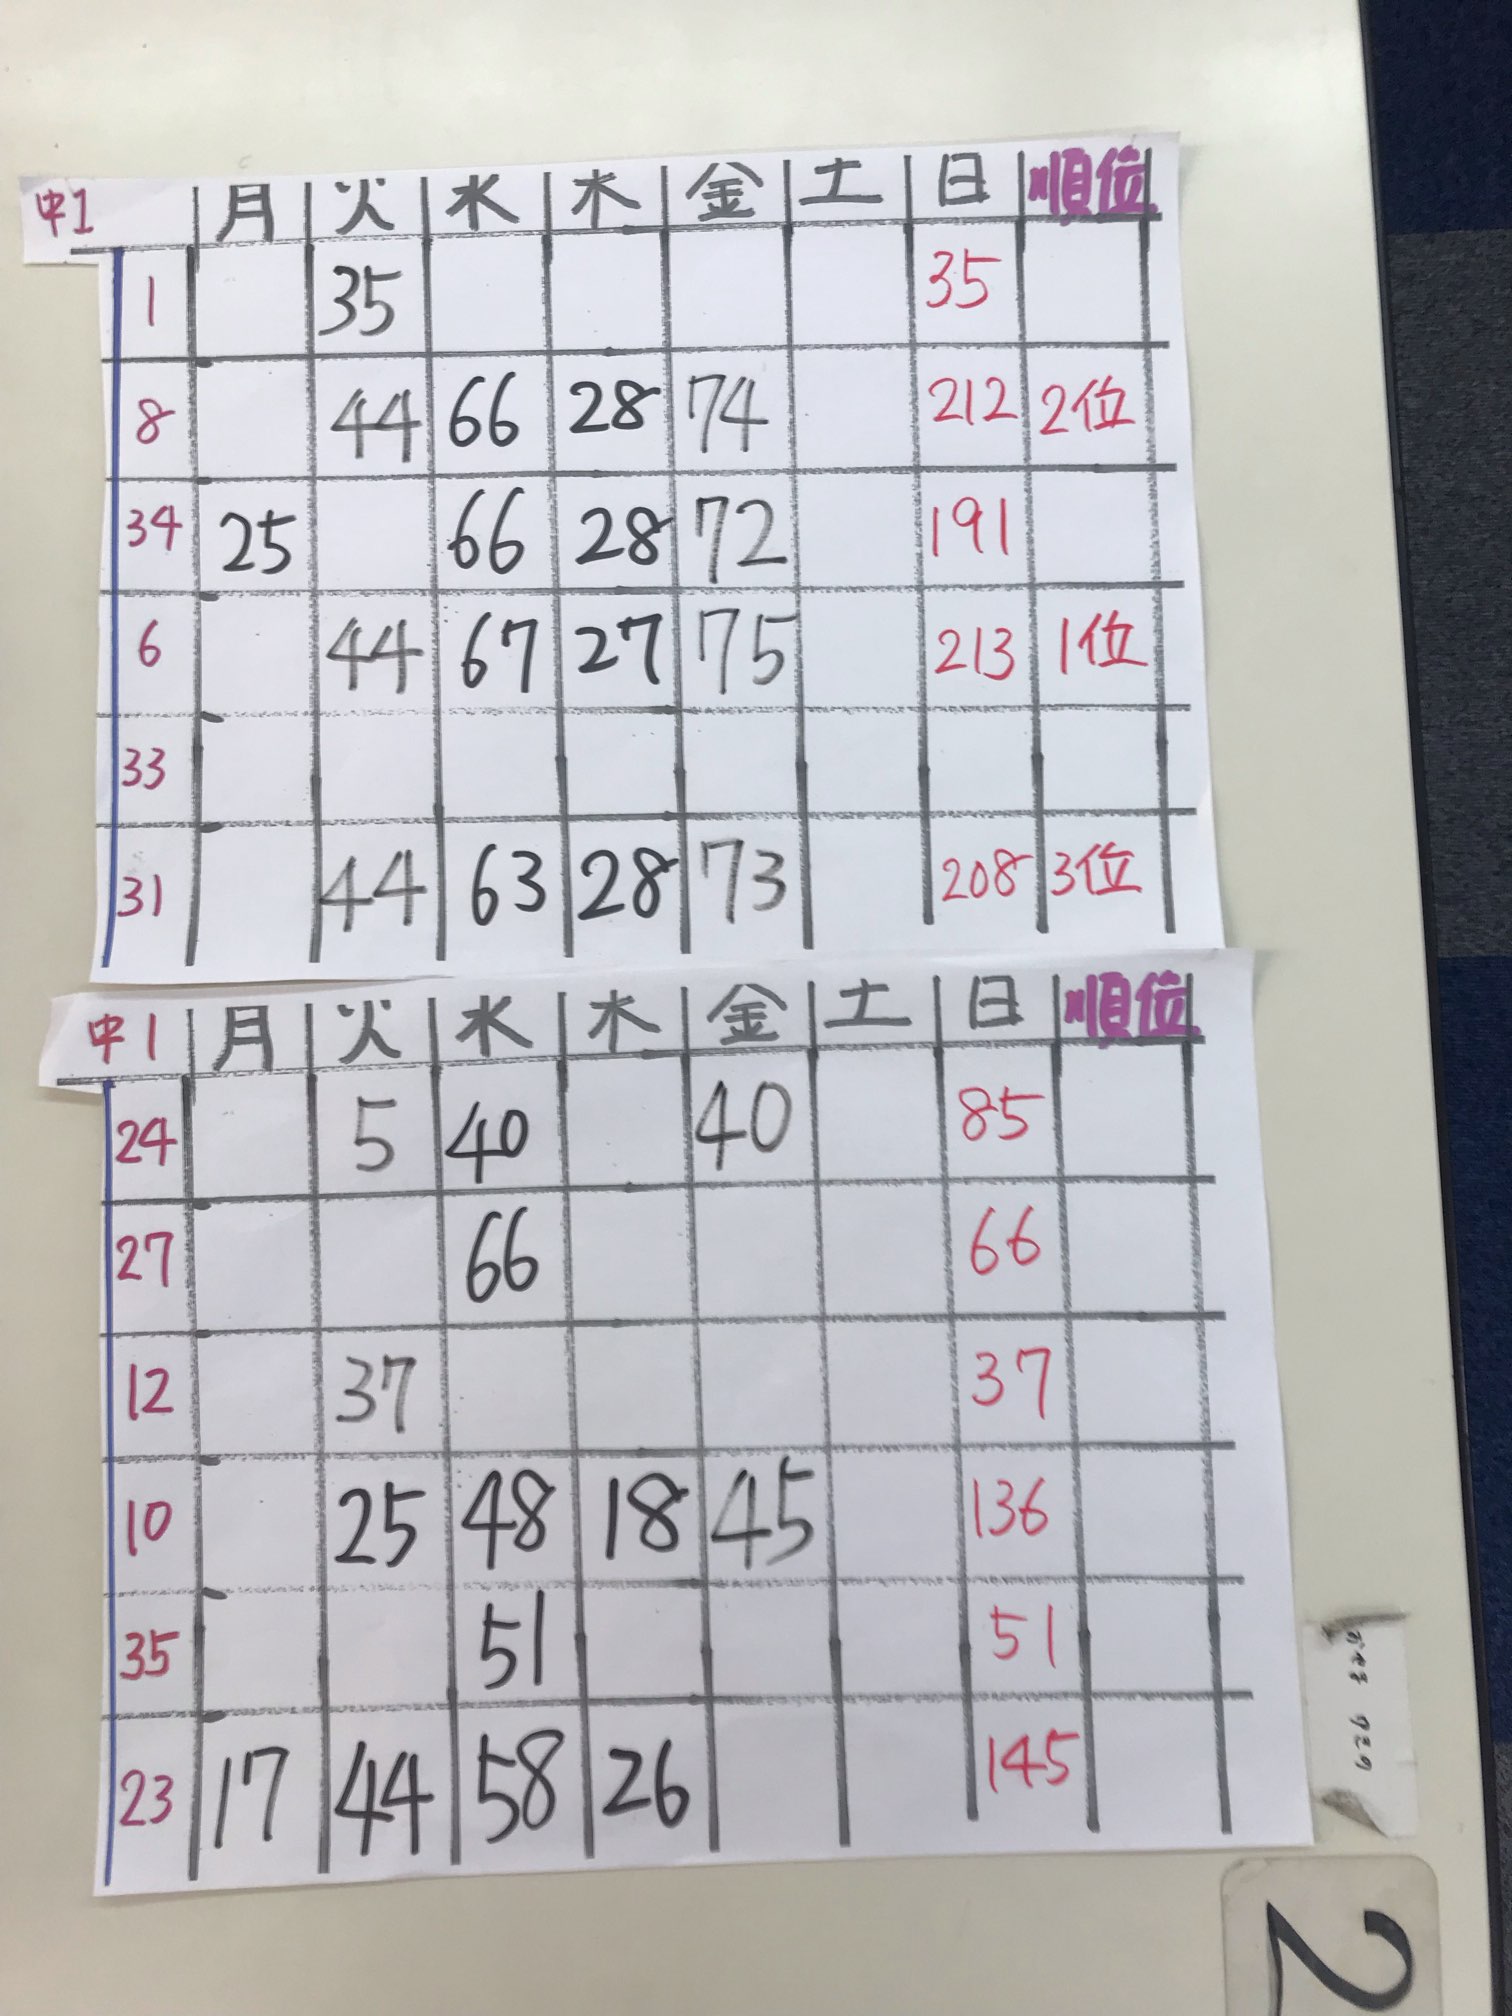 中1 月 火 水 木 金 土 日 順位
1 35 35
8 44 66 28 74 212 2位
34 25 66 28 72 191
6 44 67 27 75 213 1位
33
31 44 63 28 73 208 3位
中1 月 火 水 木 金 土 日 順位
24 5 40 40 85
27 66 66
12 37 37
10 25 48 18 45 136
35 51 51
23 17 44 58 26 145
2